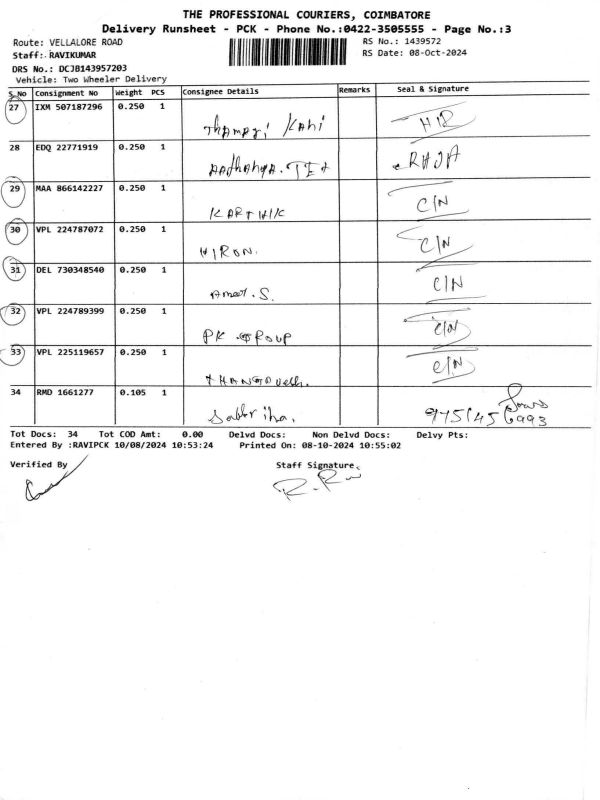 THE PROFESSIONAL COURIERS, COIMBATORE
Delivery Runsheet - PCK - Phone No.:0422-3505555 - Page No.:3
Route: VELLALORE ROAD
RS No.: 1439572
Staff: RAVIKUMAR
RS Date: 08-Oct-2024
DRS No.: DCJB143957203
Vehicle: Two Wheeler Delivery
S.No Consignment No Weight PCS Consignee Details Remarks Seal & Signature
27 IXM 507187296 0.250 1
28 EDQ 22771919 0.250 1
29 MAA 866142227 0.250 1
KARTHIK C/N
30 VPL 224787072 0.250 1
HIRON. C/N
31 DEL 730348540 0.250 1
S. C/N
32 VPL 224789399 0.250 1
PK GROUP C/N
33 VPL 225119657 0.250 1
C/N
34 RMD 1661277 0.105 1
Tot Docs: 34 Tot COD Amt: 0.00 Delvd Docs: Non Delvd Docs: Delvy Pts:
Entered By :RAVIPCK 10/08/2024 10:53:24 Printed On: 08-10-2024 10:55:02
Verified By Staff Signature